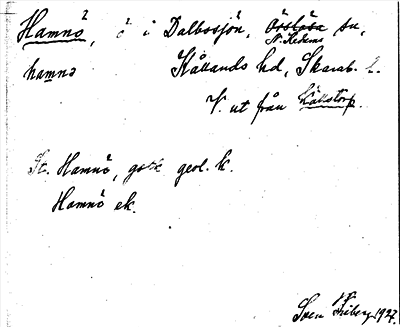 Hamnö, ö i Dalbosjön, Örslösa sn,
N. Kedums
hamnö Kållands hd, Skarab. l.
V. ut från Källstorp.
St. Hamnö, gstk geol. k.
Hamnö ek.
Sven Friberg 1927.